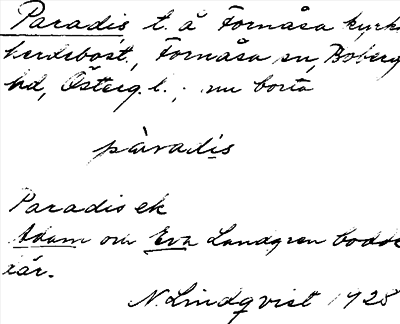 Paradis t. å Fornåsa kyrk
herdebost., Fornåsa sn, Boberg
hd, Österg. l.; nu borta
pàradis
Paradis ek
Adam om Eva Landgren bodde
där.
N. Lindqvist 1928